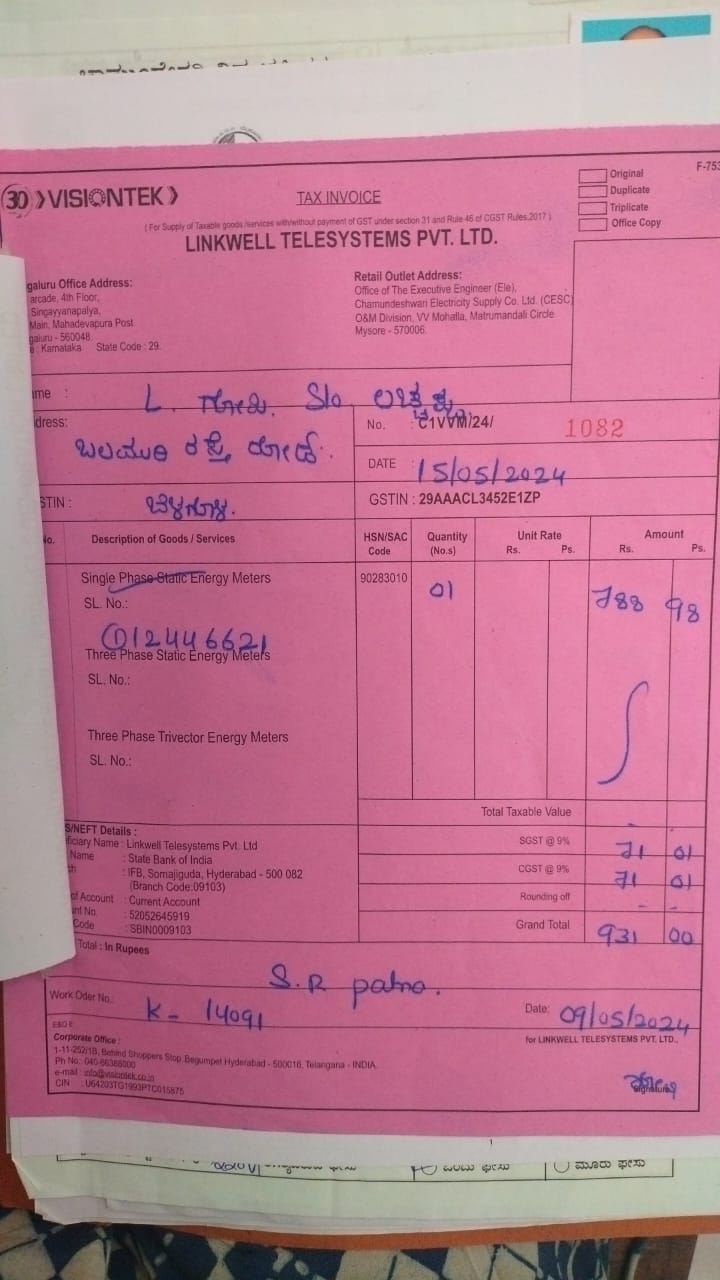 F-753
Original
Duplicate
Triplicate
Office Copy
30 VISIONTEK
TAX INVOICE
( For Supply of Taxable goods /services with/without payment of GST under section 31 and Rule 46 of CGST Rules,2017 )
LINKWELL TELESYSTEMS PVT. LTD.
galuru Office Address:
arcade, 4th Floor,
Singayyanapalya,
Main, Mahadevapura Post
galuru - 560048.
e : Karnataka State Code : 29.
Retail Outlet Address:
Office of The Executive Engineer (Ele),
Chamundeshwari Electricity Supply Co. Ltd. (CESC
O&M Division, VV Mohalla, Matrumandali Circle
Mysore - 570006.
me : L. ಗೋಪಿ S/o
dress: ಬಲಮುರಿ ರಸ್ತೆ ರೋಡ್.
No. : C1VVM/24/ 1082
DATE : 15/05/2024
STIN : ಬೆಳಗೊಳ.
GSTIN : 29AAACL3452E1ZP
No. Description of Goods / Services HSN/SAC Code Quantity (No.s) Unit Rate Rs. Ps. Amount Rs. Ps.
Single Phase Static Energy Meters 90283010 01 788 98
SL. No.:
012446621
Three Phase Static Energy Meters
SL. No.:
Three Phase Trivector Energy Meters
SL. No.:
Total Taxable Value -
S/NEFT Details :
SGST @ 9% 71 01
ficiary Name : Linkwell Telesystems Pvt. Ltd
Name : State Bank of India
CGST @ 9% 71 01
: IFB, Somajiguda, Hyderabad - 500 082
(Branch Code:09103)
Rounding off - -
of Account : Current Account
unt No. : 52052645919
Grand Total 931 00
Code : SBIN0009103
Total : In Rupees
S.R
Work Oder No. K - 14091
Date: 09/05/2024
E&O E
for LINKWELL TELESYSTEMS PVT. LTD.,
Corporate Office :
1-11-252/1B, Behind Shoppers Stop, Begumpet Hyderabad - 500016, Telangana - INDIA.
Ph No.: 040-66388000
e-mail : info@visiontek.co.in
CIN : U64203TG1993PTC015875
Signature
ಒಂದು ಫೇಸು
ಮೂರು ಫೇಸು